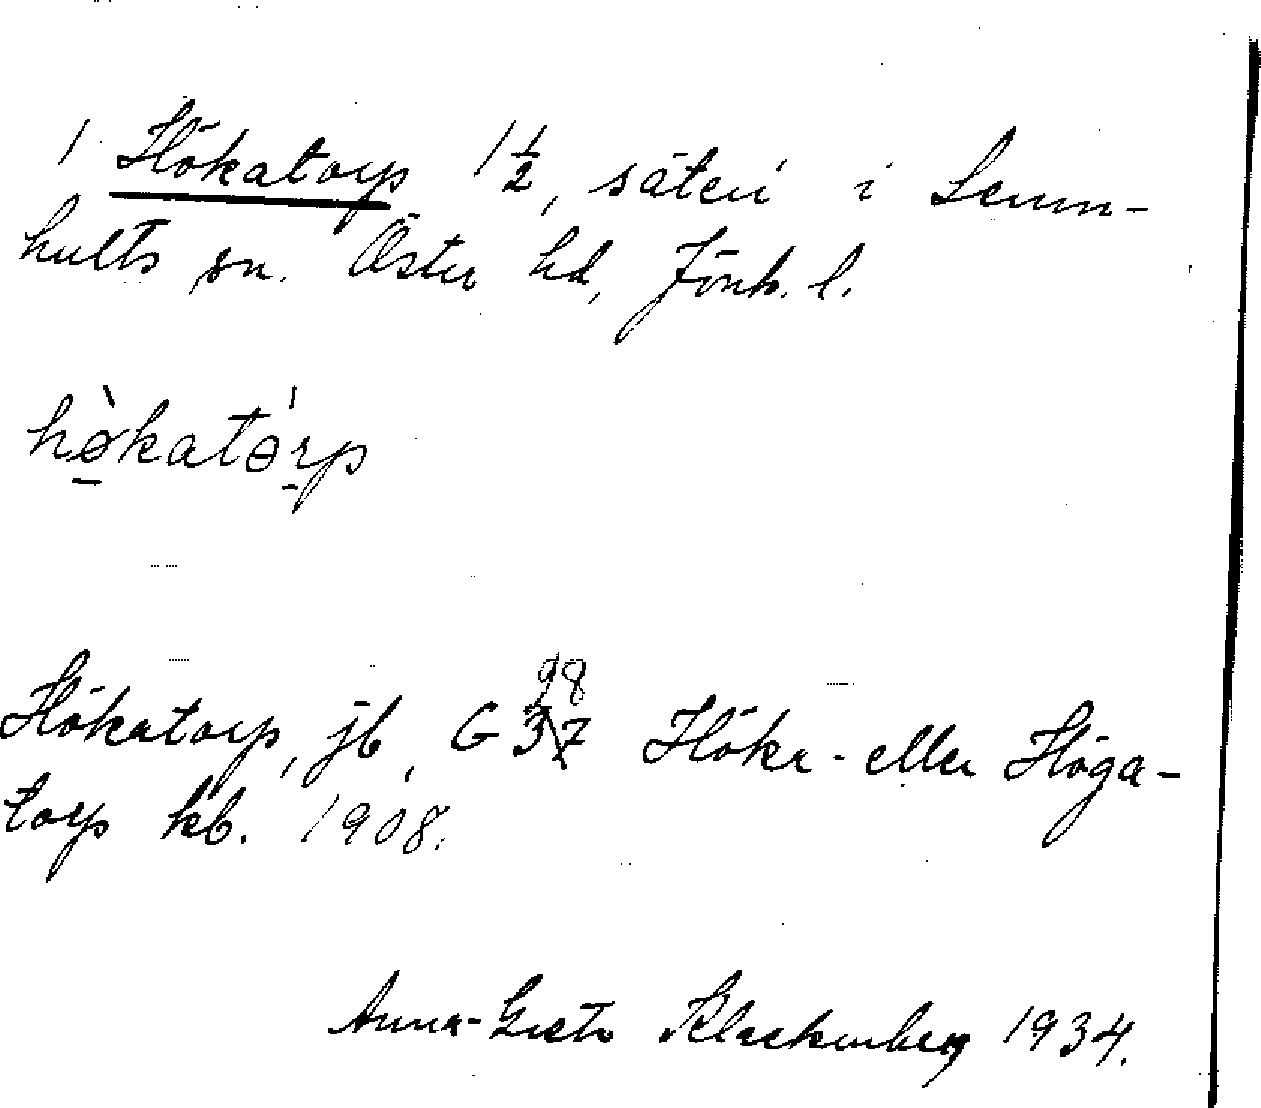 1 Hökatorp 1 1/2, säteri i Lemn-
hults sn. Östra hd, Jönk. l.
hø̀katɵ́rp
Hökatorp, jb, G 37 98 Höka- eller Höga-
torp kb. 1908.
Anna-Greta Klackenberg 1934.